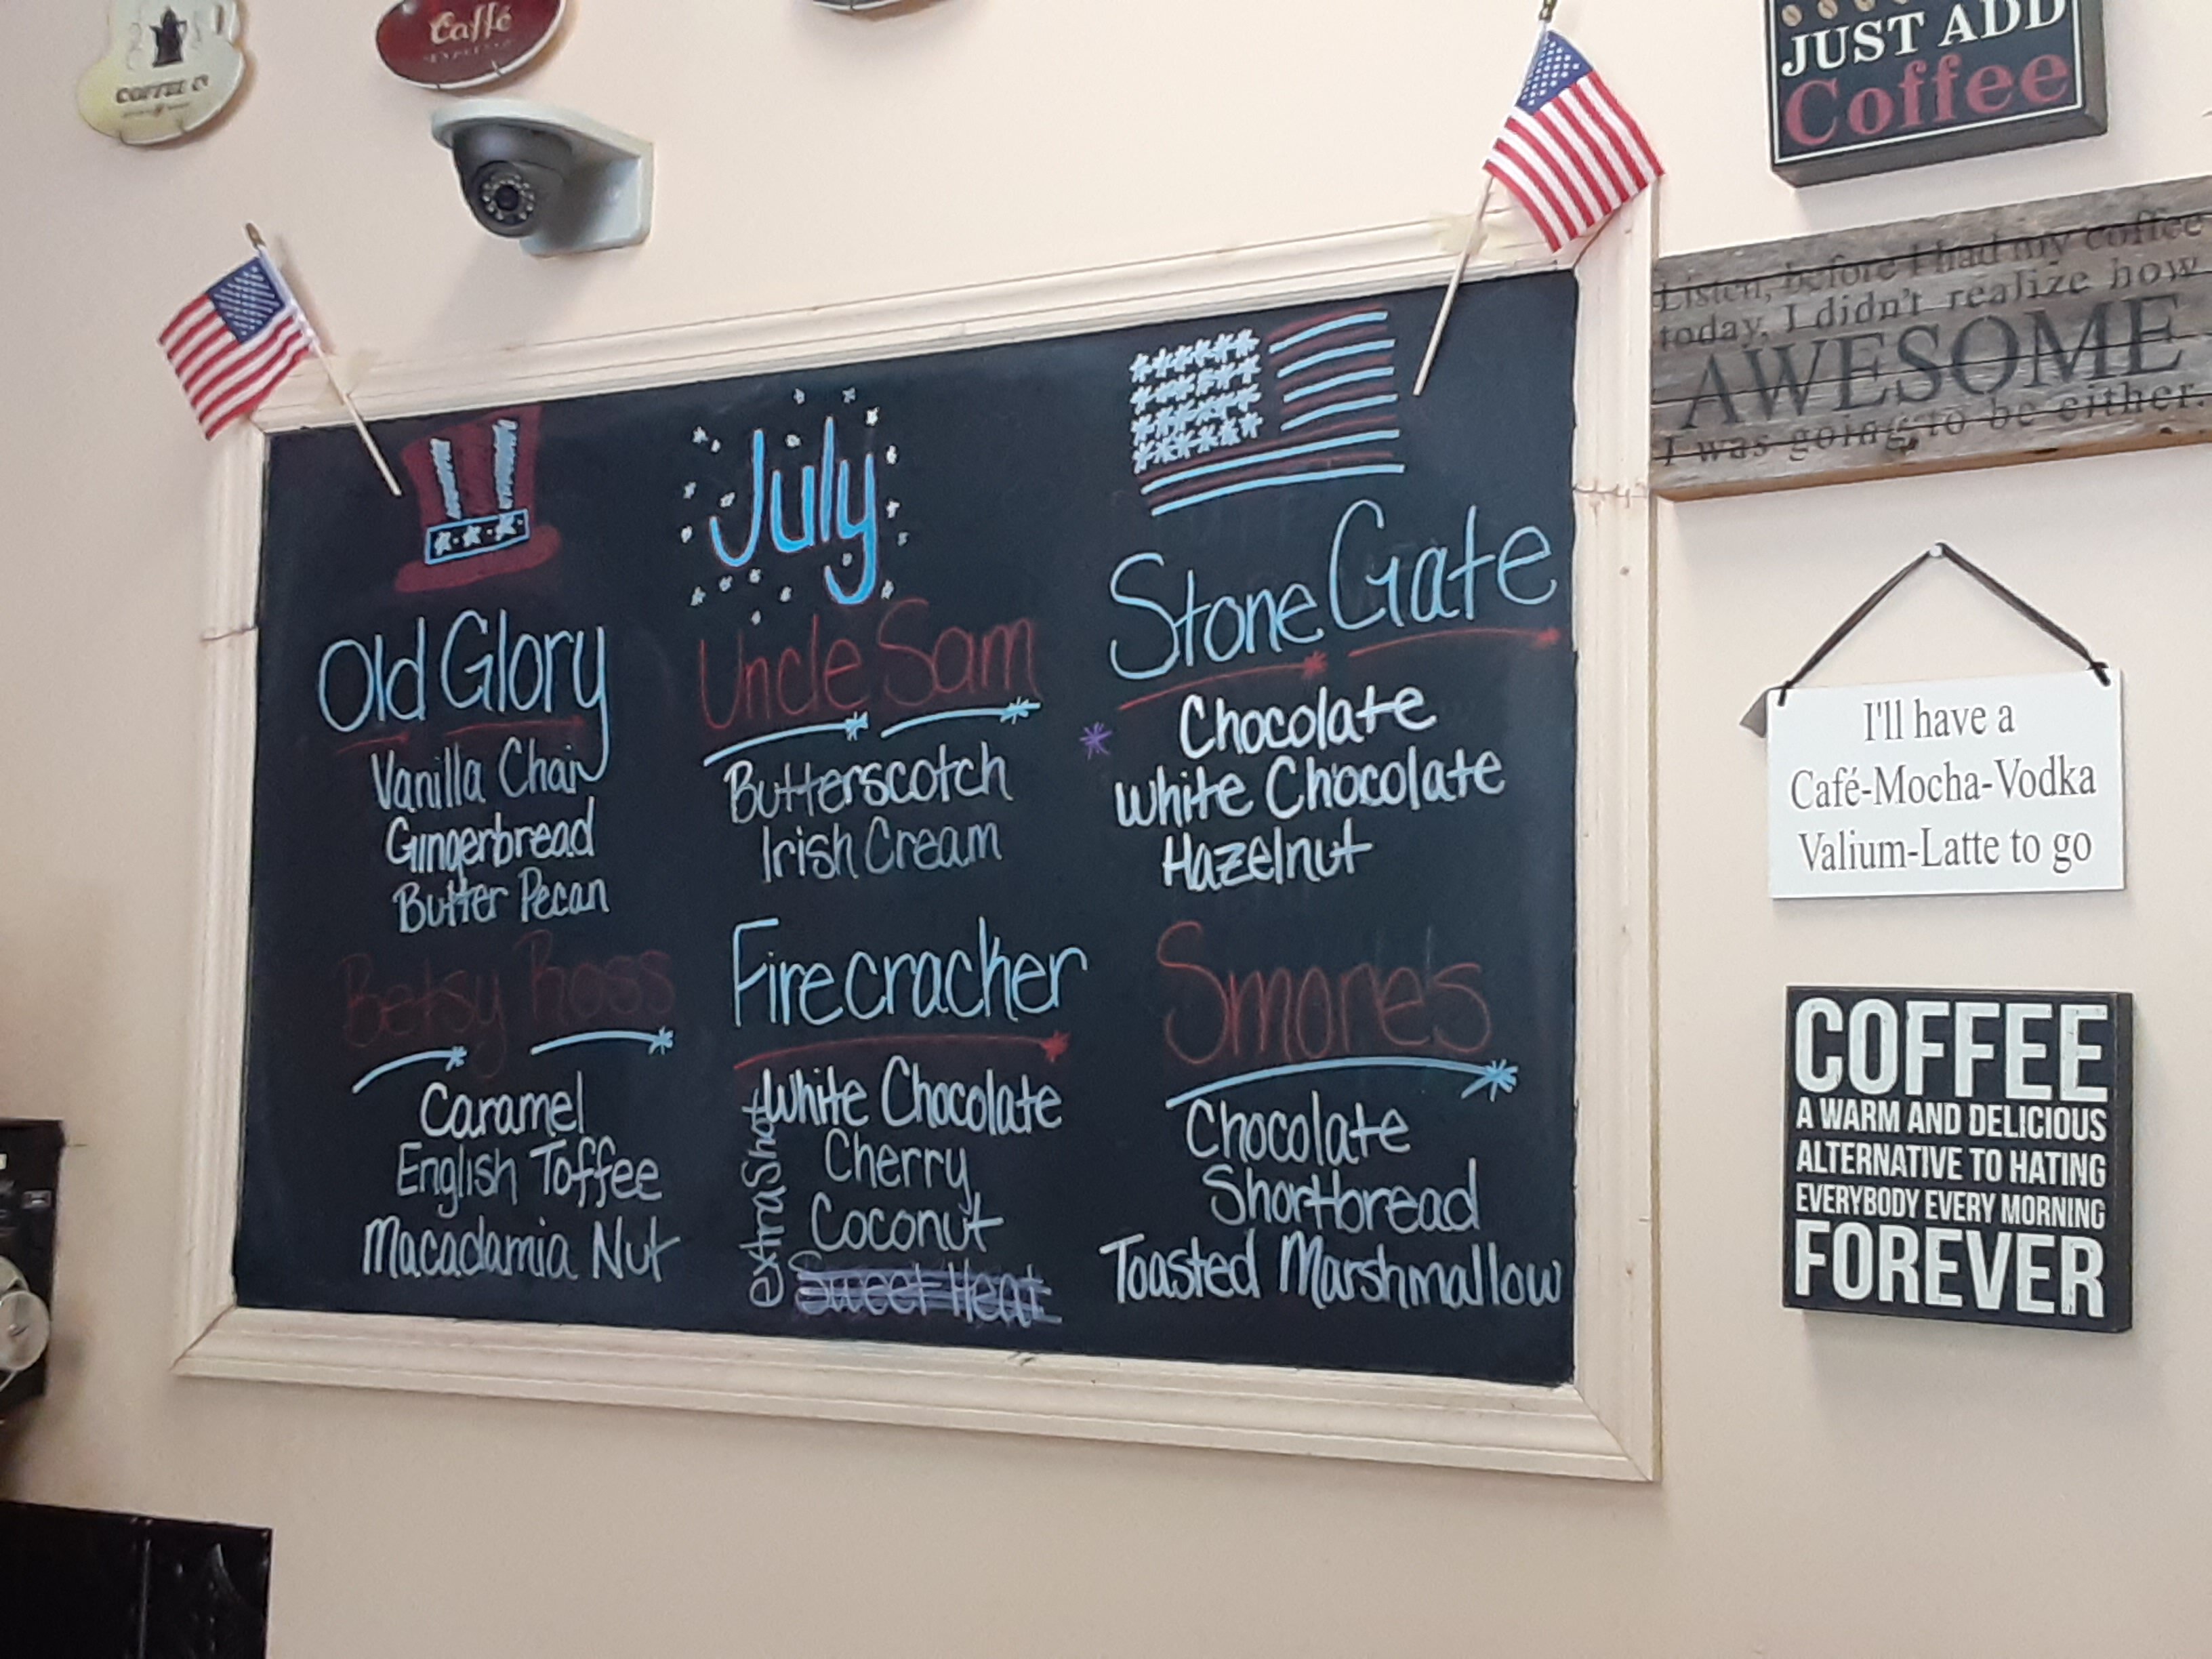 COFFEE CO
Caffé
JUST ADD
Coffee
Listen, before I had my coffee
today, I didn't realize how
AWESOME
I was going to be either.
July
Old Glory
Vanilla Chai
Gingerbread
Butter Pecan
Uncle Sam
Butterscotch
Irish Cream
Stone Gate
Chocolate
White Chocolate
Hazelnut
Betsy Ross
Caramel
English Toffee
Macadamia Nut
Firecracker
White Chocolate
Cherry
Coconut
Sweet Heat
extra Shot
Smore's
Chocolate
Shortbread
Toasted Marshmallow
I'll have a
Café-Mocha-Vodka
Valium-Latte to go
COFFEE
A WARM AND DELICIOUS
ALTERNATIVE TO HATING
EVERYBODY EVERY MORNING
FOREVER